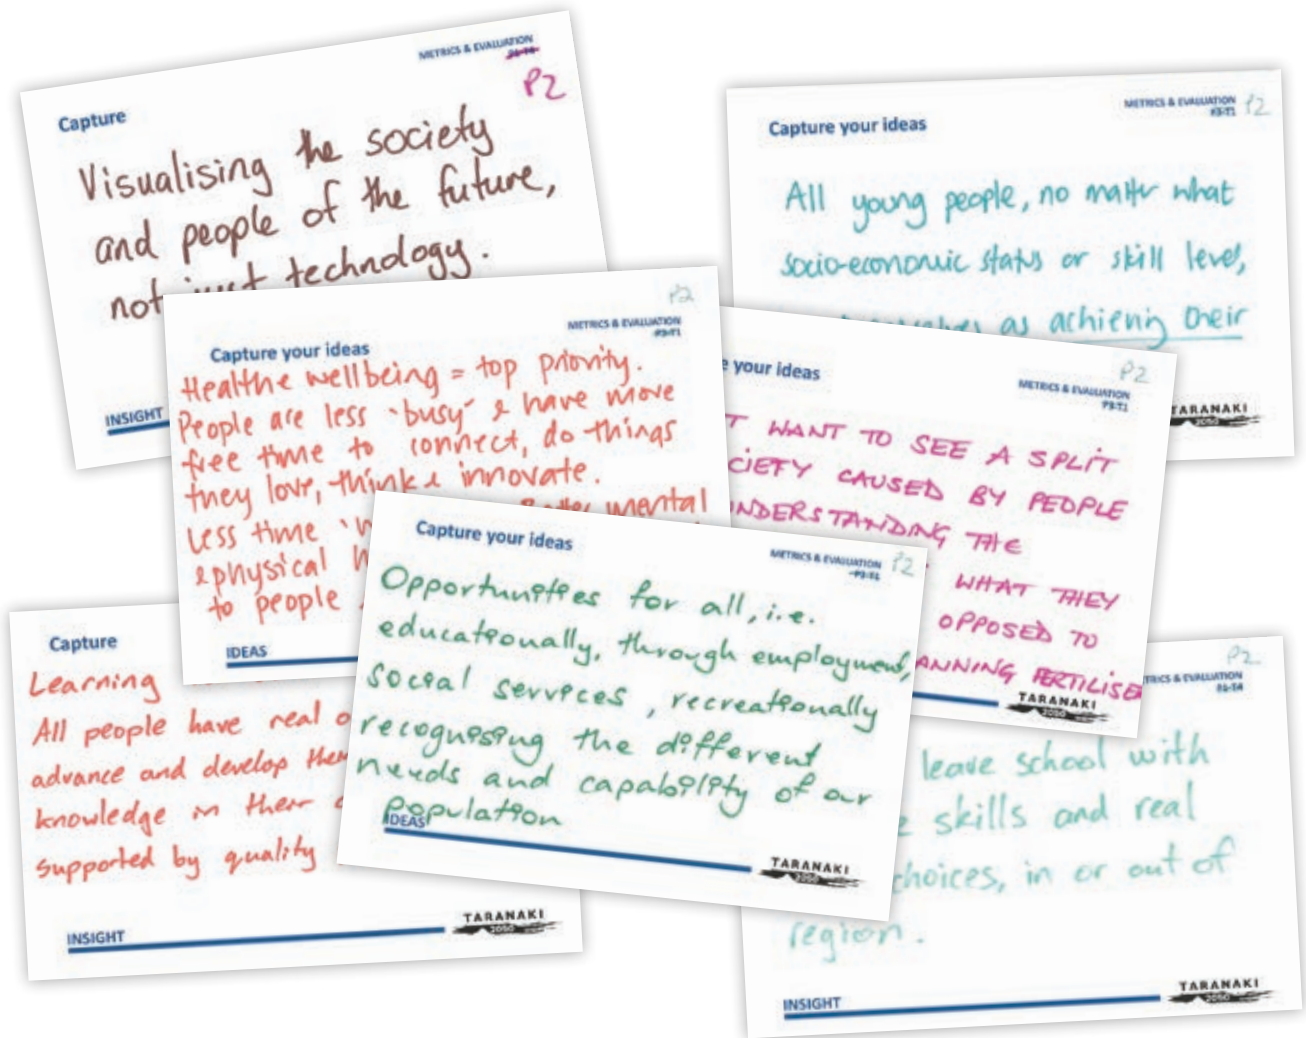 METRICS & EVALUATION
P2
Capture
Visualising the society
and people of the future,
not just technology.
INSIGHT
METRICS & EVALUATION
P3-T1
P2
Capture your ideas
All young people, no matter what
socio-economic status or skill level,
as achieving their
TARANAKI
2050
P2
METRICS & EVALUATION
P3-T1
Capture your ideas
Health & wellbeing = top priority.
People are less 'busy' & have more
free time to connect, do things
they love, think & innovate.
Less time mental
& physical
to people
IDEAS
your ideas
P2
METRICS & EVALUATION
P3-T1
WANT TO SEE A SPLIT
CAUSED BY PEOPLE
THE
WHAT THEY
OPPOSED TO
TARANAKI
2050
Capture your ideas
METRICS & EVALUATION
P2
Opportunities for all, i.e.
educationally, through employment,
social services, recreationally
recognising the different
needs and capability of our
population
IDEAS
TARANAKI
2050
Capture
Learning
All people have real
advance and develop
knowledge in their
supported by quality
INSIGHT
TARANAKI
2050
P2
EVALUATION
leave school with
skills and real
choices, in or out of
region.
INSIGHT
TARANAKI
2050